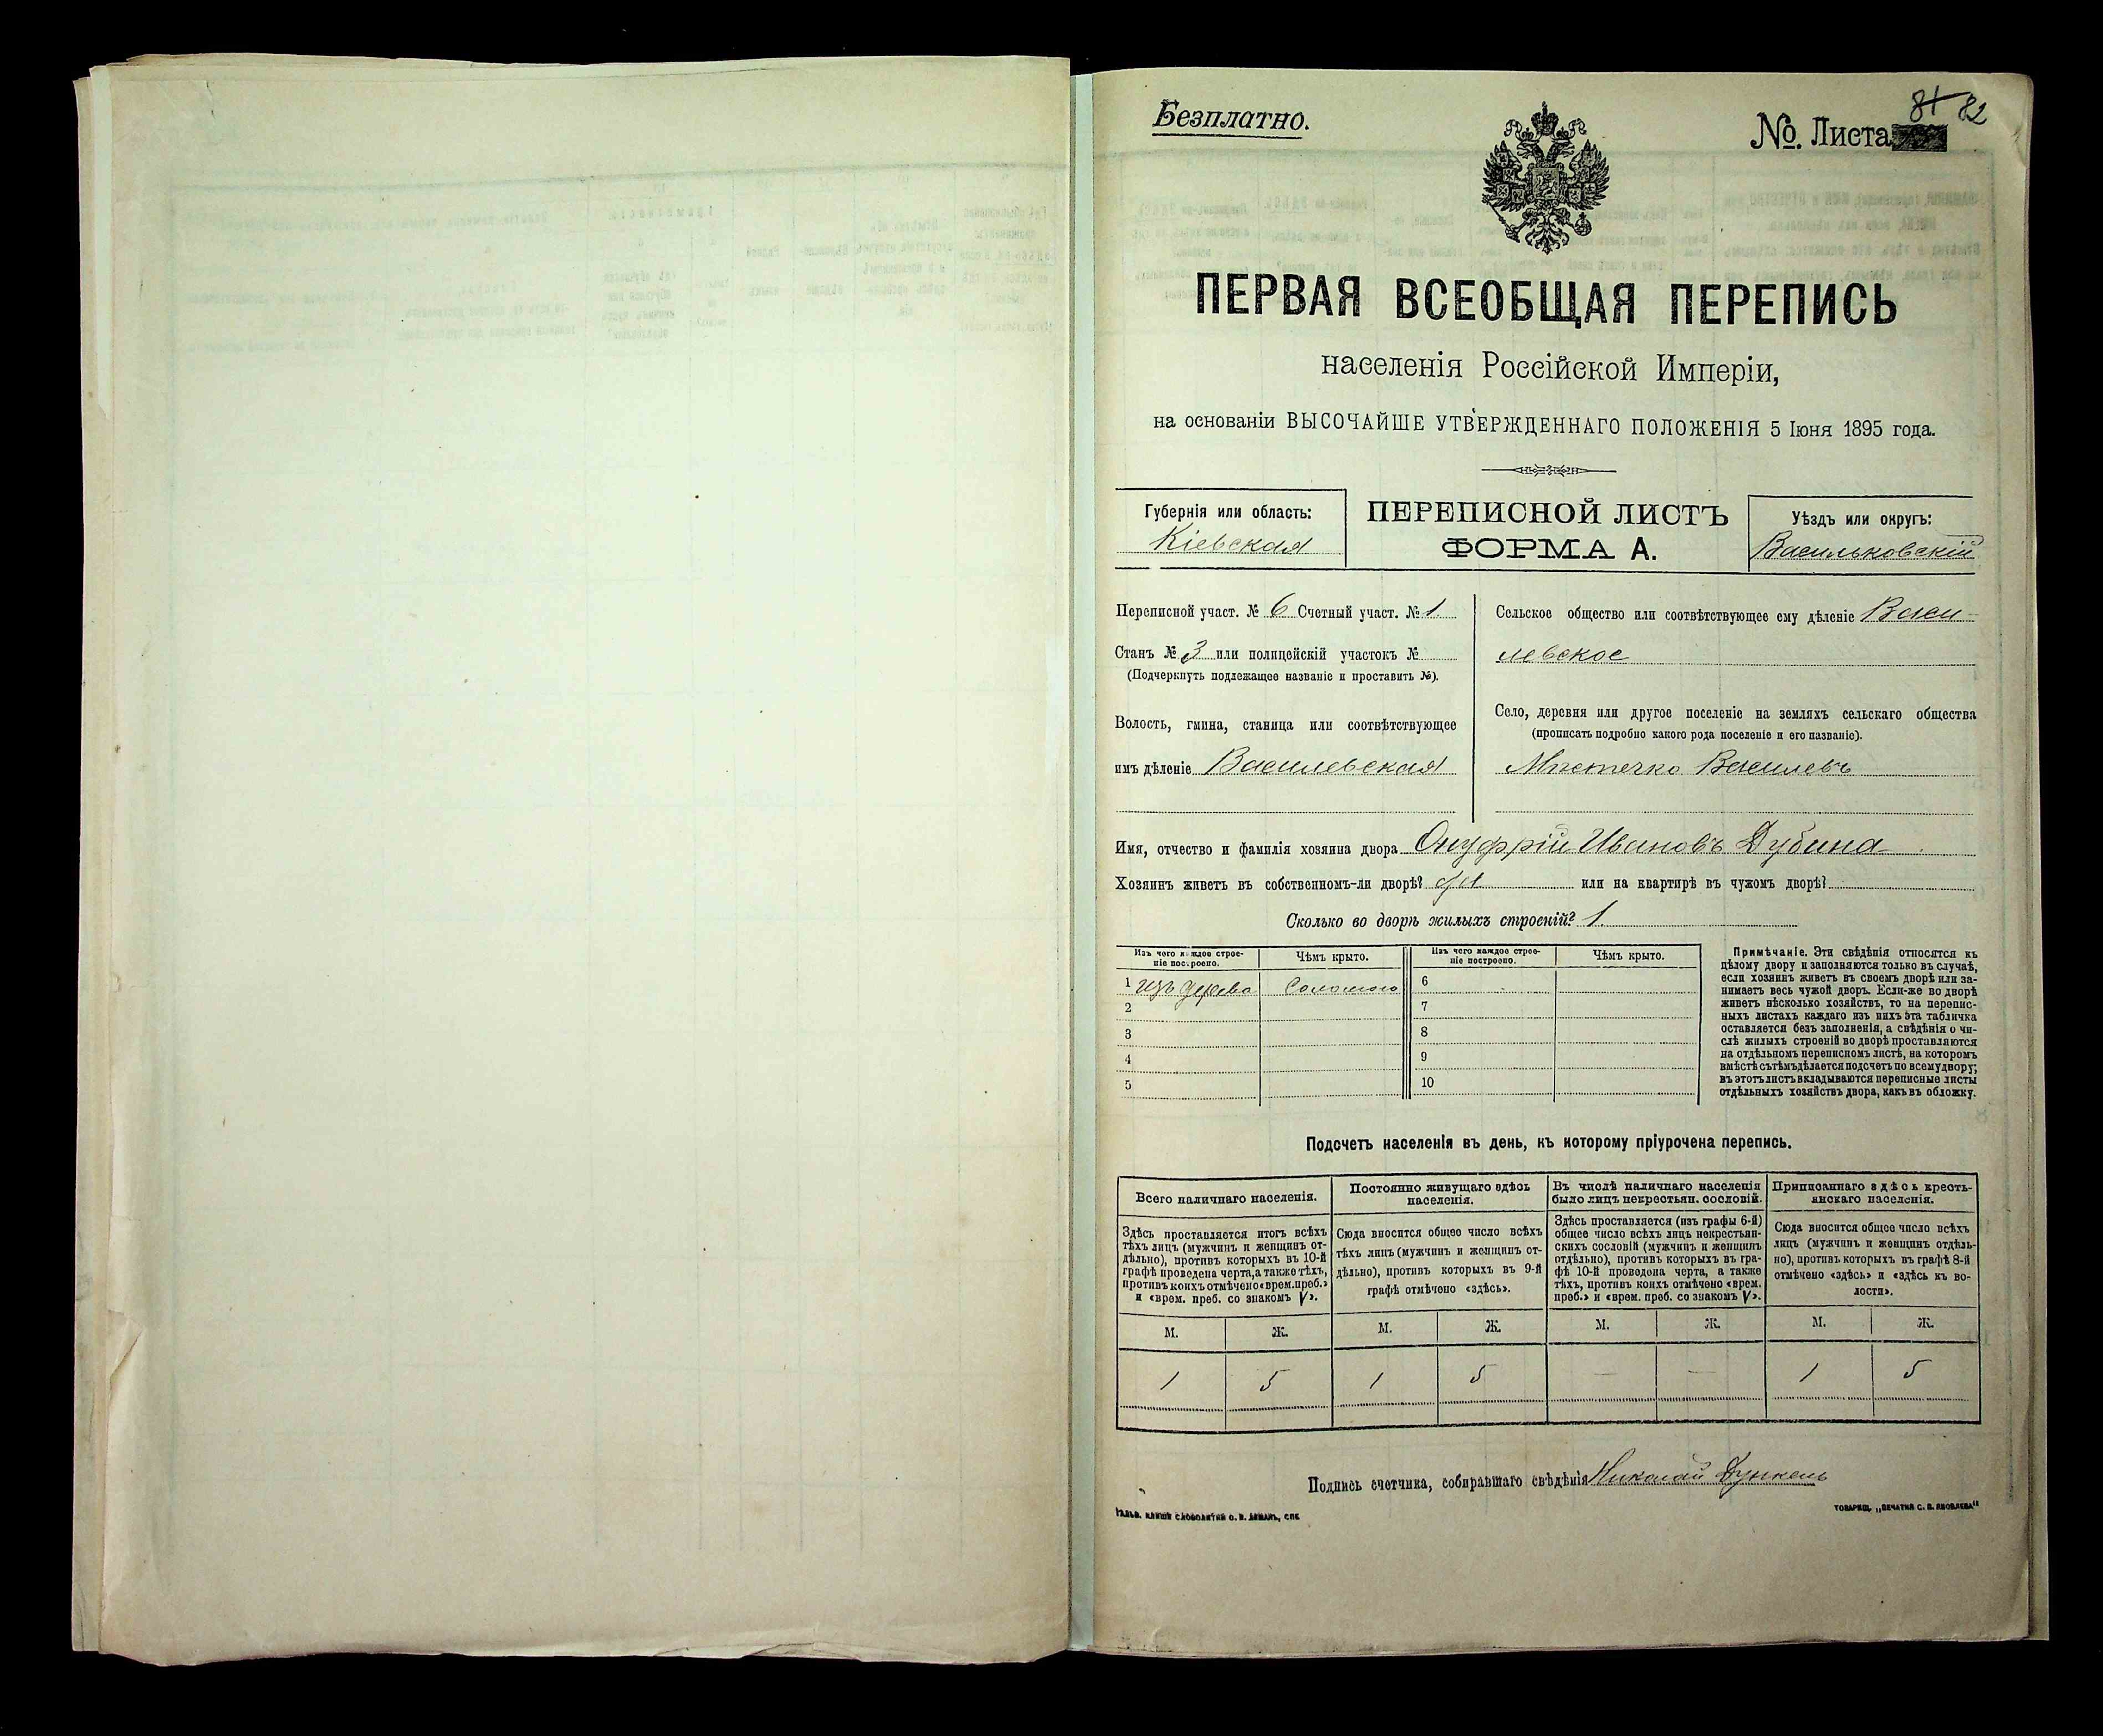 Безплатно.
№. Листа 82
ПЕРВАЯ ВСЕОБЩАЯ ПЕРЕПИСЬ
населенія Россійской Имперіи,
на основаніи ВЫСОЧАЙШЕ УТВЕРЖДЕННАГО ПОЛОЖЕНІЯ 5 Іюня 1895 года.
Губернія или область:
Кіевская
ПЕРЕПИСНОЙ ЛИСТЪ
ФОРМА А.
Уѣздъ или округъ:
Васильковскій
Переписной участ. № 6 Счетный участ. № 1.
Станъ № 3 или полицейскій участокъ №
(Подчеркнуть подлежащее названіе и проставить №).
Волость, гмина, станица или соотвѣтствующее
имъ дѣленіе Василевская
Сельское общество или соотвѣтствующее ему дѣленіе Васи-
левское
Село, деревня или другое поселеніе на земляхъ сельскаго общества
(прописать подробно какого рода поселеніе и его названіе).
Мѣстечко Василевъ
Имя, отчество и фамилія хозяина двора Онуфрій Ивановъ Дубина
Хозяинъ живетъ въ собственномъ-ли дворѣ? да или на квартирѣ въ чужомъ дворѣ?
Сколько во дворѣ жилыхъ строеній? 1.
Изъ чего каждое строе-
ніе построено.
Чѣмъ крыто.
Изъ чего каждое строе-
ніе построено.
Чѣмъ крыто.
1 изъ дерева Соломою 6
2 7
3 8
4 9
5 10
Примѣчаніе. Эти свѣдѣнія относятся къ
цѣлому двору и заполняются только въ случаѣ,
если хозяинъ живетъ въ своемъ дворѣ или за-
нимаетъ весь чужой дворъ. Если-же во дворѣ
живетъ нѣсколько хозяйствъ, то на перепис-
ныхъ листахъ каждаго изъ нихъ эта табличка
оставляется безъ заполненія, а свѣдѣнія о чи-
слѣ жилыхъ строеній во дворѣ проставляются
на отдѣльномъ переписномъ листѣ, на которомъ
вмѣстѣ съ тѣмъ дѣлается подсчетъ по всему двору;
въ этотъ листъ вкладываются переписные листы
отдѣльныхъ хозяйствъ двора, какъ въ обложку.
Подсчетъ населенія въ день, къ которому пріурочена перепись.
Всего наличнаго населенія.
Здѣсь проставляется итогъ всѣхъ
тѣхъ лицъ (мужчинъ и женщинъ от-
дѣльно), противъ которыхъ въ 10-й
графѣ проведена черта, а также тѣхъ,
противъ коихъ отмѣчено «врем. преб.»
и «врем. преб. со знакомъ V».
Постоянно живущаго здѣсь
населенія.
Сюда вносится общее число всѣхъ
тѣхъ лицъ (мужчинъ и женщинъ от-
дѣльно), противъ которыхъ въ 9-й
графѣ отмѣчено «здѣсь».
Въ числѣ наличнаго населенія
было лицъ некрестьян. сословій.
Здѣсь проставляется (изъ графы 6-й)
общее число всѣхъ лицъ некрестьян-
скихъ сословій (мужчинъ и женщинъ
отдѣльно), противъ которыхъ въ гра-
фѣ 10-й проведена черта, а также
тѣхъ, противъ коихъ отмѣчено «врем.
преб.» и «врем. преб. со знакомъ V».
Приписаннаго здѣсь кресть-
янскаго населенія.
Сюда вносится общее число всѣхъ
лицъ (мужчинъ и женщинъ отдѣль-
но), противъ которыхъ въ графѣ 8-й
отмѣчено «здѣсь» и «здѣсь къ во-
лости».
М. Ж. М. Ж. М. Ж. М. Ж.
1 5 1 5 — — 1 5
Подпись счетчика, собиравшаго свѣдѣнія Николай Дункель
ТОВАРИЩ. „ПЕЧАТНЯ С. П. ЯКОВЛЕВА"